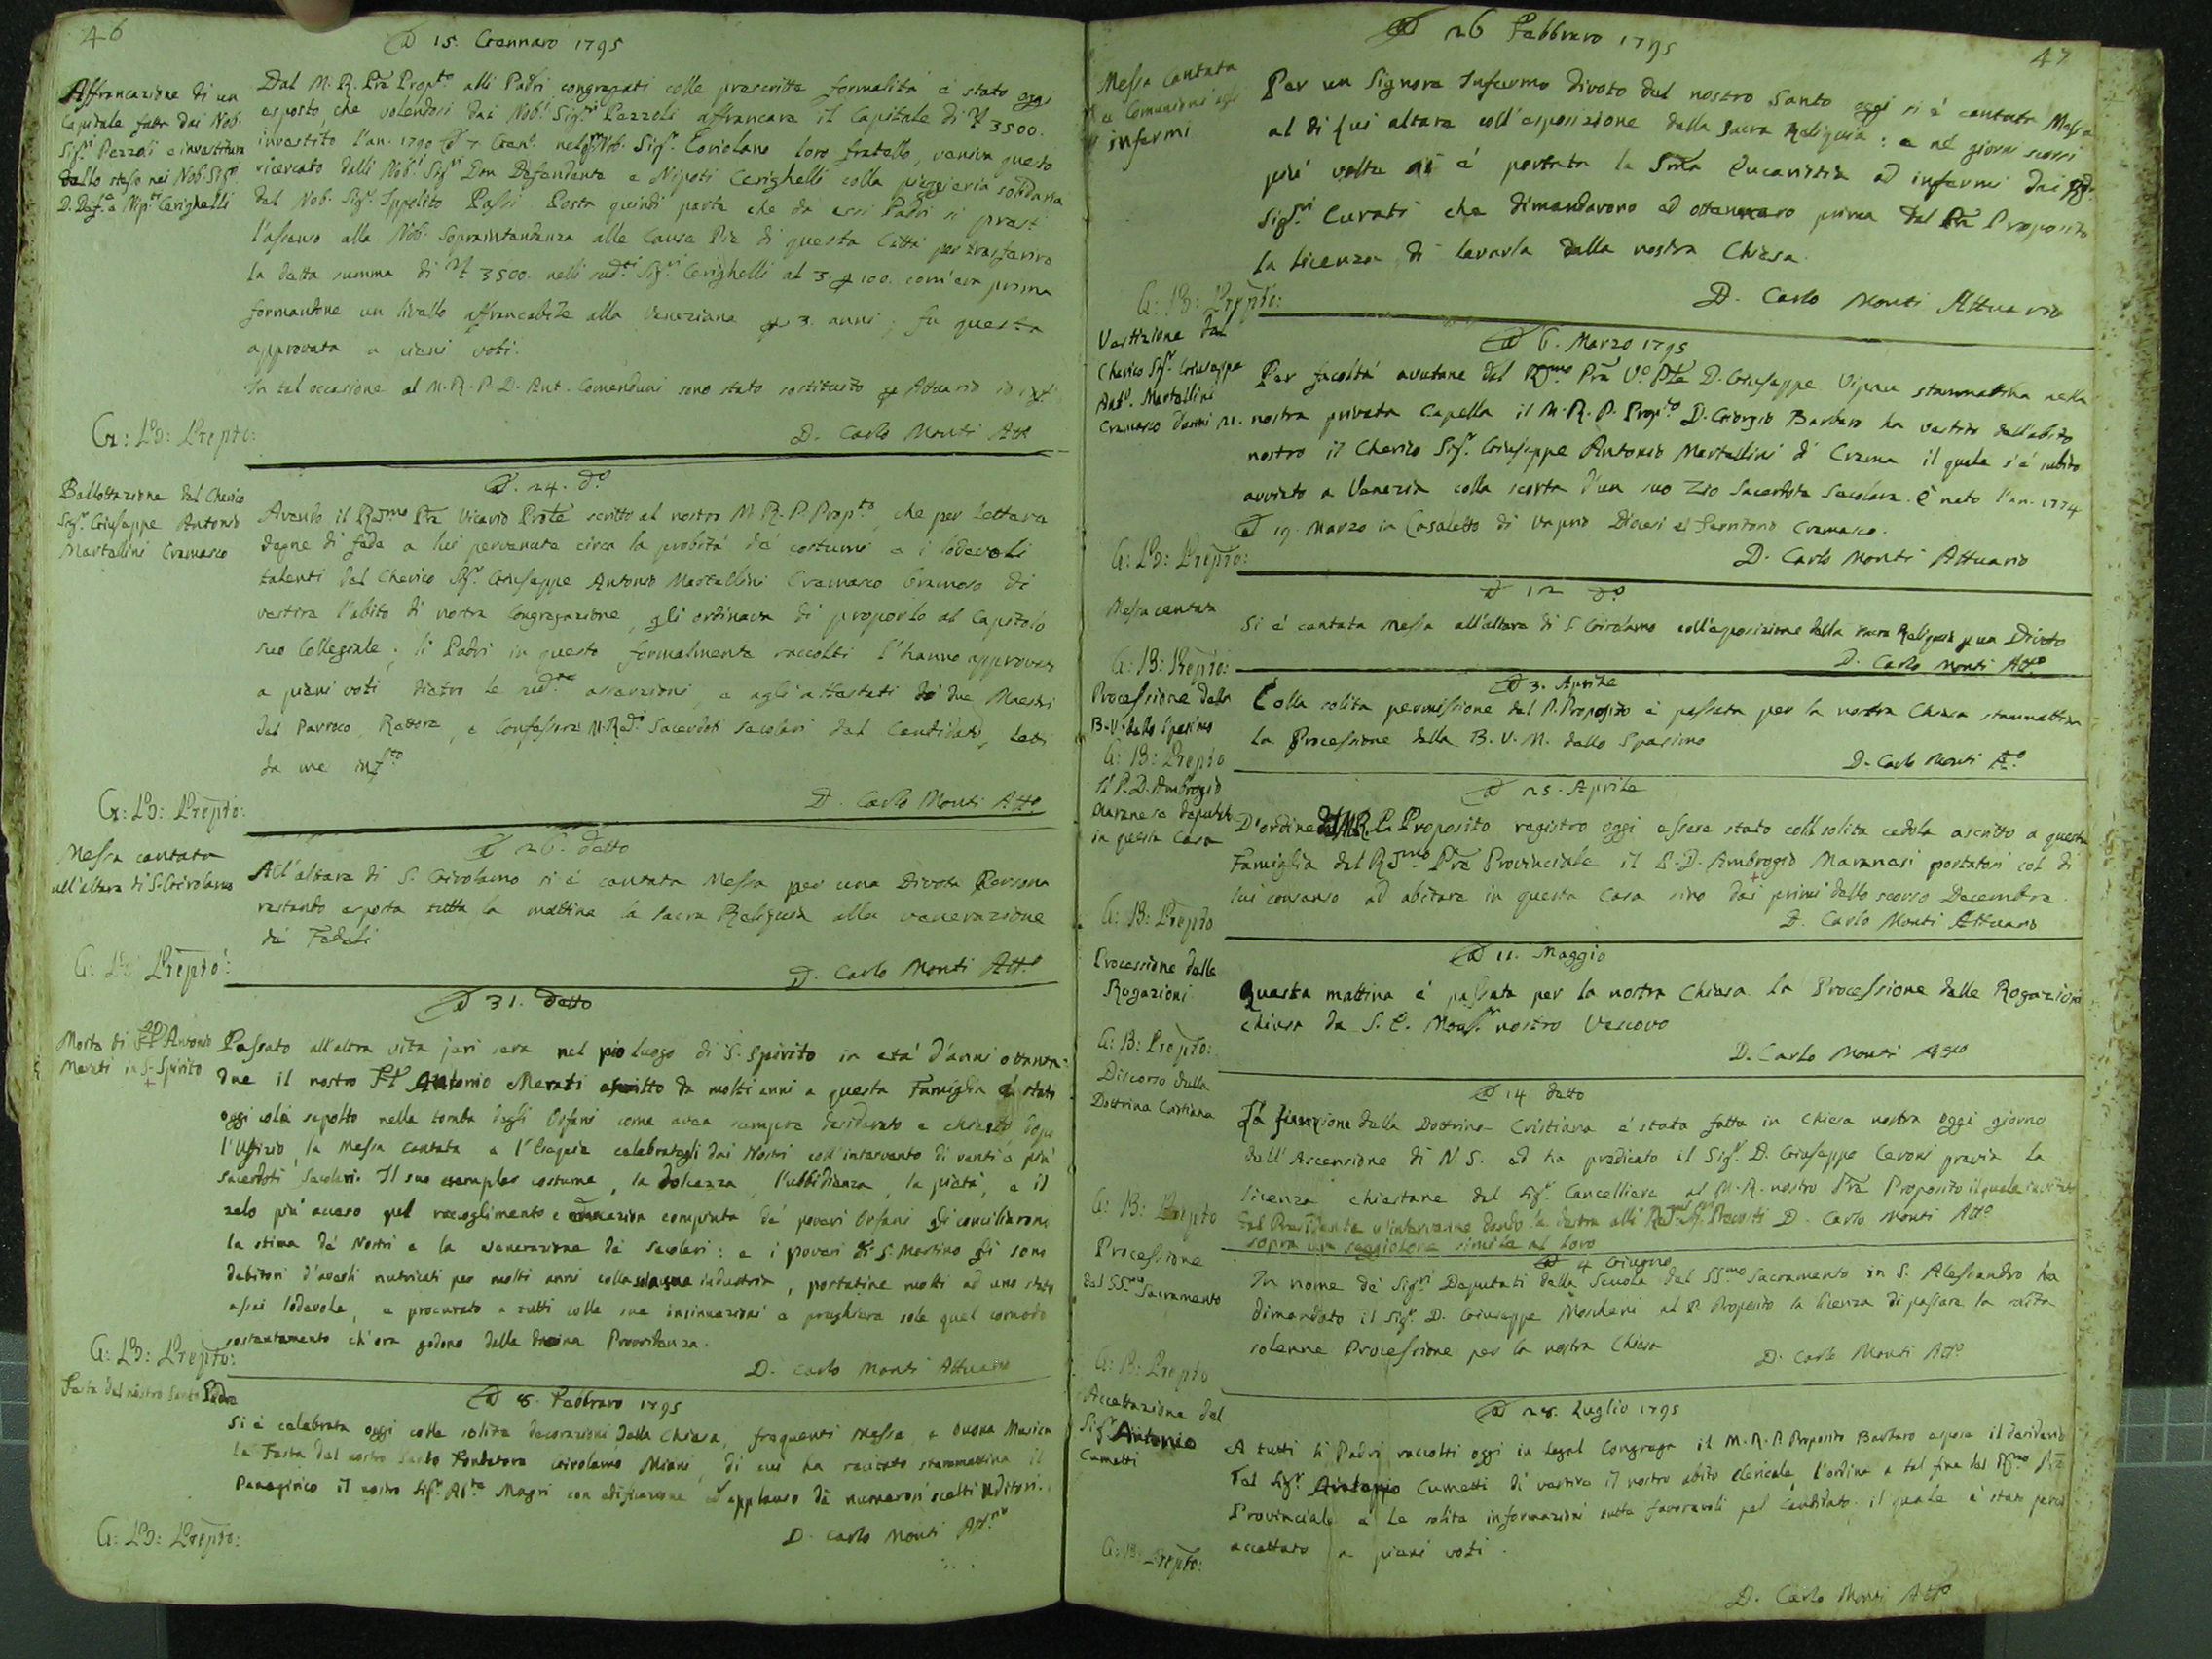 46
A 15. Gennaro 1795
Affrancazione di un
Capitale fatta dai Nob.
Sig.ri Pezzoli e investitura
dello stesso nei Nob. Sig.ri
D. Def.e e Nip.ti Cerighelli
Dal M. R. Pre Prop.to alli Padri congregati colle prescritte formalità è stato oggi
esposto, che volendosi dai Nob.i Sig.ri Pezzoli affrancare il Capitale di 3500.
investito l'an. 1790 A 7 Gen.o nel Nob. Sig.r Coriolano loro fratello, veniva questo
ricercato dalli Nob.i Sig.ri Don Defendente e Nipoti Cerighelli colla pieggieria solidaria
del Nob. Sig.r Ippolito Passi Posta quindi parte che da essi Padri si presti
l'assenso alla Nob. Sopraintendenza alle Cause Pie di questa Città per trasferire
la detta summa di 3500. nelli sud.ti Sig.ri Cerighelli al 3. p 100. com'era prima
formandone un livello affrancabile alla Veneziana p 3. anni; fu questa
approvata a pieni voti.
In tal occasione al M. R. P. D. Ant. Comenduni sono stato sostituito p Attuario io
G: B: Prepto:
D. Carlo Monti Att.
A. 24. d.o
Ballottazione del Cherico
Sig.r Giuseppe Antonio
Martellini Cremasco
Avendo il R.mo Pre Vicario Prole scritto al nostro M. R. P. Prop.to, che per lettere
degne di fede a lui pervenute circa la probità de' costumi e i lodevoli
talenti del Cherico Sig.r Giuseppe Antonio Martellini Cremasco bramoso di
vestire l'abito di nostra Congregazione, gli ordinava di proporlo al Capitolo
suo Collegiale; li Padri in questo formalmente raccolti l'hanno approvato
a pieni voti dietro le sud.te asserzioni, e agli attestati de' due Maestri
del Parroco, Rettore, e Confessore M. R.di Sacerdoti secolari del Candidato, letti
da me inf.to
G: B: Prepto:
D. Carlo Monti Att.o
A 26. detto
Messa cantata
all'altare di S. Girolamo
All'altare di S. Girolamo si è cantata Messa per una Divota Persona
restando esposta tutta la mattina la Sacra Reliquia alla venerazione
de' Fedeli
G: B: Prepto:
D. Carlo Monti Att.o
A 31. detto
Morte di Antonio
Merati in S. Spirito
Passato all'altra vita jeri sera nel pio luogo di S. Spirito in età d'anni ottanta-
due il nostro Antonio Merati ascritto da molti anni a questa Famiglia è stato
oggi colà sepolto nella tomba degli Orfani come avea sempre desiderato e chiesto dopo
l'Uffizio, la Messa cantata e l'Esequie celebrategli dai Nostri coll'intervento di venti e più
sacerdoti secolari. Il suo esemplar costume, la dolcezza, l'ubbidienza, la pietà, e il
zelo più acceso pel raccoglimento e educazion compiuta de' poveri Orfani gli conciliarono
la stima de' Nostri e la venerazione de' secolari: e i poveri di S. Martino gli sono
debitori d'averli nutricati per molti anni colla sua industria, portatine molti ad uno stato
assai lodevole, e procurato a tutti colle sue insinuazioni e preghiere sole quel comodo
sostentamento ch'ora godono dalla divina Provvidenza.
G: B: Prepto:
D. Carlo Monti Attuario
Festa del nostro Santo Padre
A 8. Febbraro 1795
Si è celebrata oggi colle solite decorazioni della Chiesa, frequenti Messe, e buona Musica
la Festa del nostro Santo Fondatore Girolamo Miani, di cui ha recitato stammattina il
Panegirico il nostro Sig.r Ab.te Magri con edificazione ed applauso de' numerosi scelti Uditori.
G: B: Prepto:
D. Carlo Monti Att.rio
47
A 26 Febbraro 1795
Messa Cantata
e Comunioni agli
infermi
Per un Signore Infermo Divoto del nostro Santo oggi si è cantata Messa
al di Lui altare coll'esposizione della Sacra Reliquia: e nel giorni scorsi
più volte si è portata la S.ma Eucaristia ad infermi dai
Sig.ri Curati che dimandarono ed ottennero prima dal Pre Proposito
la licenza di levarla dalla nostra Chiesa.
G: B: Prepto:
D. Carlo Monti Attuario
A 6. Marzo 1795
Vestizione del
Cherico Sig.r Giuseppe
Ant.o Martellini
Cremasco d'anni 21.
Per facoltà avutane dal R.mo Pre V.o Ple D. Giuseppe Vipau stammattina nella
nostra privata Capella il M. R. P. Prop.to D. Giorgio Barbaro ha vestito dell'abito
nostro il Cherico Sig.r Giuseppe Antonio Martellini di Crema il quale s'è subito
avviato a Venezia colla scorta d'un suo Zio Sacerdote Secolare. È nato l'an. 1774
A 19. Marzo in Casaletto di Vaprio Diocesi e Territorio Cremasco.
G: B: Prepto:
D. Carlo Monti Attuario
A 12 d.o
Messa cantata
Si è cantata Messa all'altare di S. Girolamo coll'esposizione della sacra Reliquia p un Divoto
G: B: Prepto:
D. Carlo Monti Att.o
A 3. Aprile
Processione della
B. V. dello Spasimo
Colla solita permissione del P. Proposito è passata per la nostra Chiesa stammattina
la Processione della B. V. M. dello Spasimo
G: B: Prepto
D. Carlo Monti A.o
A 25. Aprile
Il P. D. Ambrogio
Maranese deputato
in questa Casa
D'ordine del M. R. P. Proposito registro oggi essere stato coll solita cedola ascritto a questa
Famiglia dal R.mo Pre Provinciale il P. D. Ambrogio Maranesi portatosi col di
lui consenso ad abitare in questa Casa sino dai primi dello scorso Decembre.
G: B: Prepto
D. Carlo Monti Attuario
A 11. Maggio
Processione delle
Rogazioni
Questa mattina è passata per la nostra Chiesa la Processione delle Rogazioni
chiusa da S. E. Mons.r nostro Vescovo
G: B: Prepto:
D. Carlo Monti Atto
A 14 detto
Discorso della
Dottrina Cristiana
La funzione della Dottrina Cristiana è stata fatta in Chiesa nostra oggi giorno
dell'Ascensione di N. S. ed ha predicato il Sig.r D. Giuseppe Ceroni previa la
licenza chiestane dal Sig.r Cancelliere al M. R. nostro Pre Proposito il quale invitato
dal Presidente v'intervenne dando la destra alli Re.mi Sig.ri Proposti D. Carlo Monti Att.o
sopra una seggiolone simile al loro
G: B: Prepto
A 4 Giugno
Processione
del SS.mo Sacramento
In nome de' Sig.ri Deputati della Scuola del SS.mo Sacramento in S. Alessandro ha
dimandato il Sig.r D. Giuseppe Moscheni al P. Proposito la licenza di passare la solita
solenne Processione per la nostra Chiesa
G: B: Prepto
D. Carlo Monti Att.o
A 28. Luglio 1795
Accettazione del
Sig.r Antonio
Cumetti
A tutti li Padri raccolti oggi in legal Congrega il M. R. P. Proposito Barbaro espose il desiderio
del Sig.r Antonio Cumetti di vestire il nostro abito Clericale, l'ordine a tal fine del R.mo Pre
Provinciale e le solite informazioni tutte favorevoli pel Candidato: il quale è stato perciò
accettato a pieni voti.
G: B: Prepto:
D. Carlo Monti Att.o